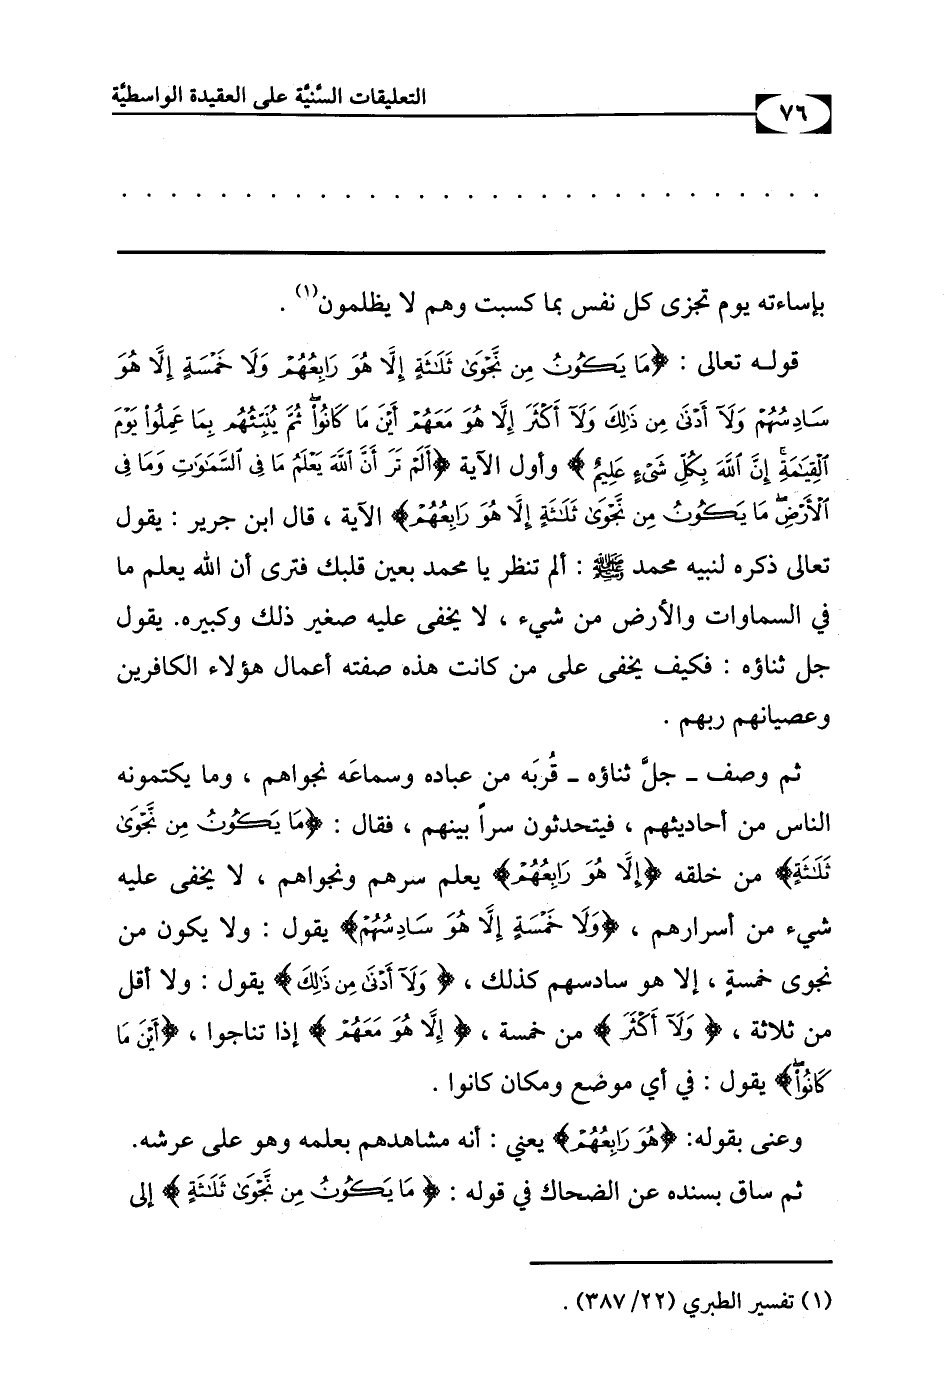 التعليقات السَّنيَّة على العقيدة الواسطيَّة
٧٦
بإساءته يوم تجزى كل نفس بما كسبت وهم لا يظلمون(١) .
قوله تعالى : ﴿مَا يَكُونُ مِن نَّجْوَىٰ ثَلَٰثَةٍ إِلَّا هُوَ رَابِعُهُمْ وَلَا خَمْسَةٍ إِلَّا هُوَ
سَادِسُهُمْ وَلَآ أَدْنَىٰ مِن ذَٰلِكَ وَلَآ أَكْثَرَ إِلَّا هُوَ مَعَهُمْ أَيْنَ مَا كَانُوا۟ ۖ ثُمَّ يُنَبِّئُهُم بِمَا عَمِلُوا۟ يَوْمَ
ٱلْقِيَٰمَةِ ۚ إِنَّ ٱللَّهَ بِكُلِّ شَىْءٍ عَلِيمٌ ﴾ وأول الآية ﴿أَلَمْ تَرَ أَنَّ ٱللَّهَ يَعْلَمُ مَا فِى ٱلسَّمَٰوَٰتِ وَمَا فِى
ٱلْأَرْضِ ۖ مَا يَكُونُ مِن نَّجْوَىٰ ثَلَٰثَةٍ إِلَّا هُوَ رَابِعُهُمْ﴾ الآية ، قال ابن جرير : يقول
تعالى ذكره لنبيه محمد ﷺ : ألم تنظر يا محمد بعين قلبك فترى أن الله يعلم ما
في السماوات والأرض من شيء ، لا يخفى عليه صغير ذلك وكبيره. يقول
جل ثناؤه : فكيف يخفى على من كانت هذه صفته أعمال هؤلاء الكافرين
وعصيانهم ربهم .
ثم وصف ـ جلَّ ثناؤه ـ قُربَه من عباده وسماعَه نجواهم ، وما يكتمونه
الناس من أحاديثهم ، فيتحدثون سراً بينهم ، فقال : ﴿مَا يَكُونُ مِن نَّجْوَىٰ
ثَلَٰثَةٍ﴾ من خلقه ﴿إِلَّا هُوَ رَابِعُهُمْ﴾ يعلم سرهم ونجواهم ، لا يخفى عليه
شيء من أسرارهم ، ﴿وَلَا خَمْسَةٍ إِلَّا هُوَ سَادِسُهُمْ﴾ يقول : ولا يكون من
نجوى خمسةٍ ، إلا هو سادسهم كذلك ، ﴿ وَلَآ أَدْنَىٰ مِن ذَٰلِكَ ﴾ يقول : ولا أقل
من ثلاثة ، ﴿ وَلَآ أَكْثَرَ ﴾ من خمسة ، ﴿ إِلَّا هُوَ مَعَهُمْ ﴾ إذا تناجوا ، ﴿أَيْنَ مَا
كَانُوا۟ ۖ﴾ يقول : في أي موضع ومكان كانوا .
وعنى بقوله: ﴿هُوَ رَابِعُهُمْ﴾ يعني : أنه مشاهدهم بعلمه وهو على عرشه.
ثم ساق بسنده عن الضحاك في قوله : ﴿ مَا يَكُونُ مِن نَّجْوَىٰ ثَلَٰثَةٍ ﴾ إلى
(١) تفسير الطبري (٢٢/ ٣٨٧) .